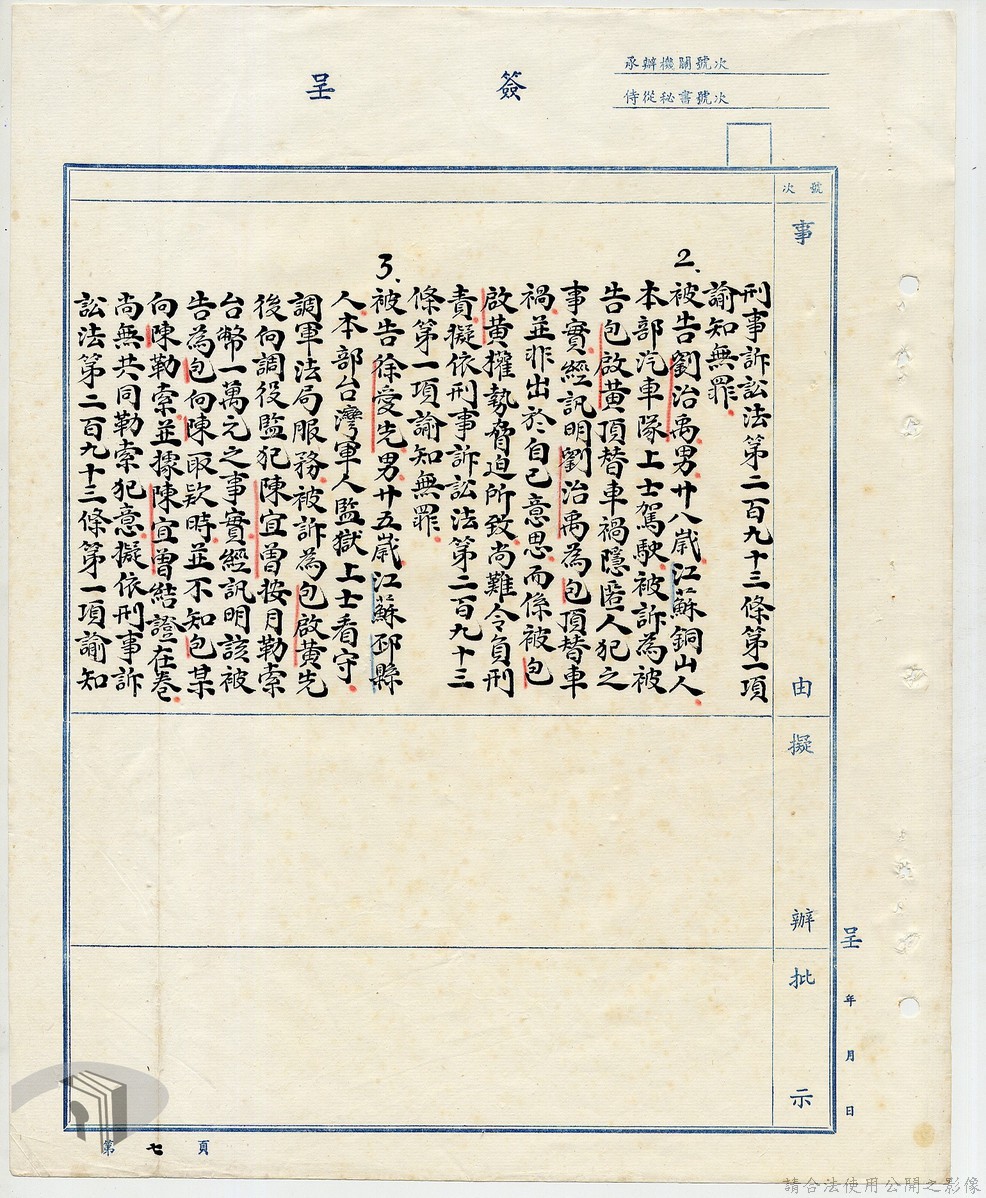 簽呈
承辦機關號次
侍從秘書號次
號次
事由
擬辦
批示
刑事訴訟法第二百九十三條第一項
諭知無罪.
2.被告劉治禹.男.廿八歲.江蘇銅山人.
本部汽車隊上士駕駛.被訴為被
告包啟黃頂替車禍隱匿人犯之
事實.經訊明劉治禹為包頂替車
禍.並非出於自己意思.而係被包
啟黃權勢脅迫所致.尚難令負刑
責.擬依刑事訴訟法第二百九十三
條第一項諭知無罪.
3.被告徐受先.男.廿五歲.江蘇邳縣
人.本部台灣軍人監獄上士看守.
調軍法局服務.被訴為包啟黃先
後向調役監犯陳宜曾按月勒索
台幣一萬元之事實.經訊明該被
告為包向陳取欵時.並不知包某
向陳勒索.並據陳宜曾結證在卷.
尚無共同勒索犯意.擬依刑事訴
訟法第二百九十三條第一項諭知
呈 年 月 日
第七頁
請合法使用公開之影像